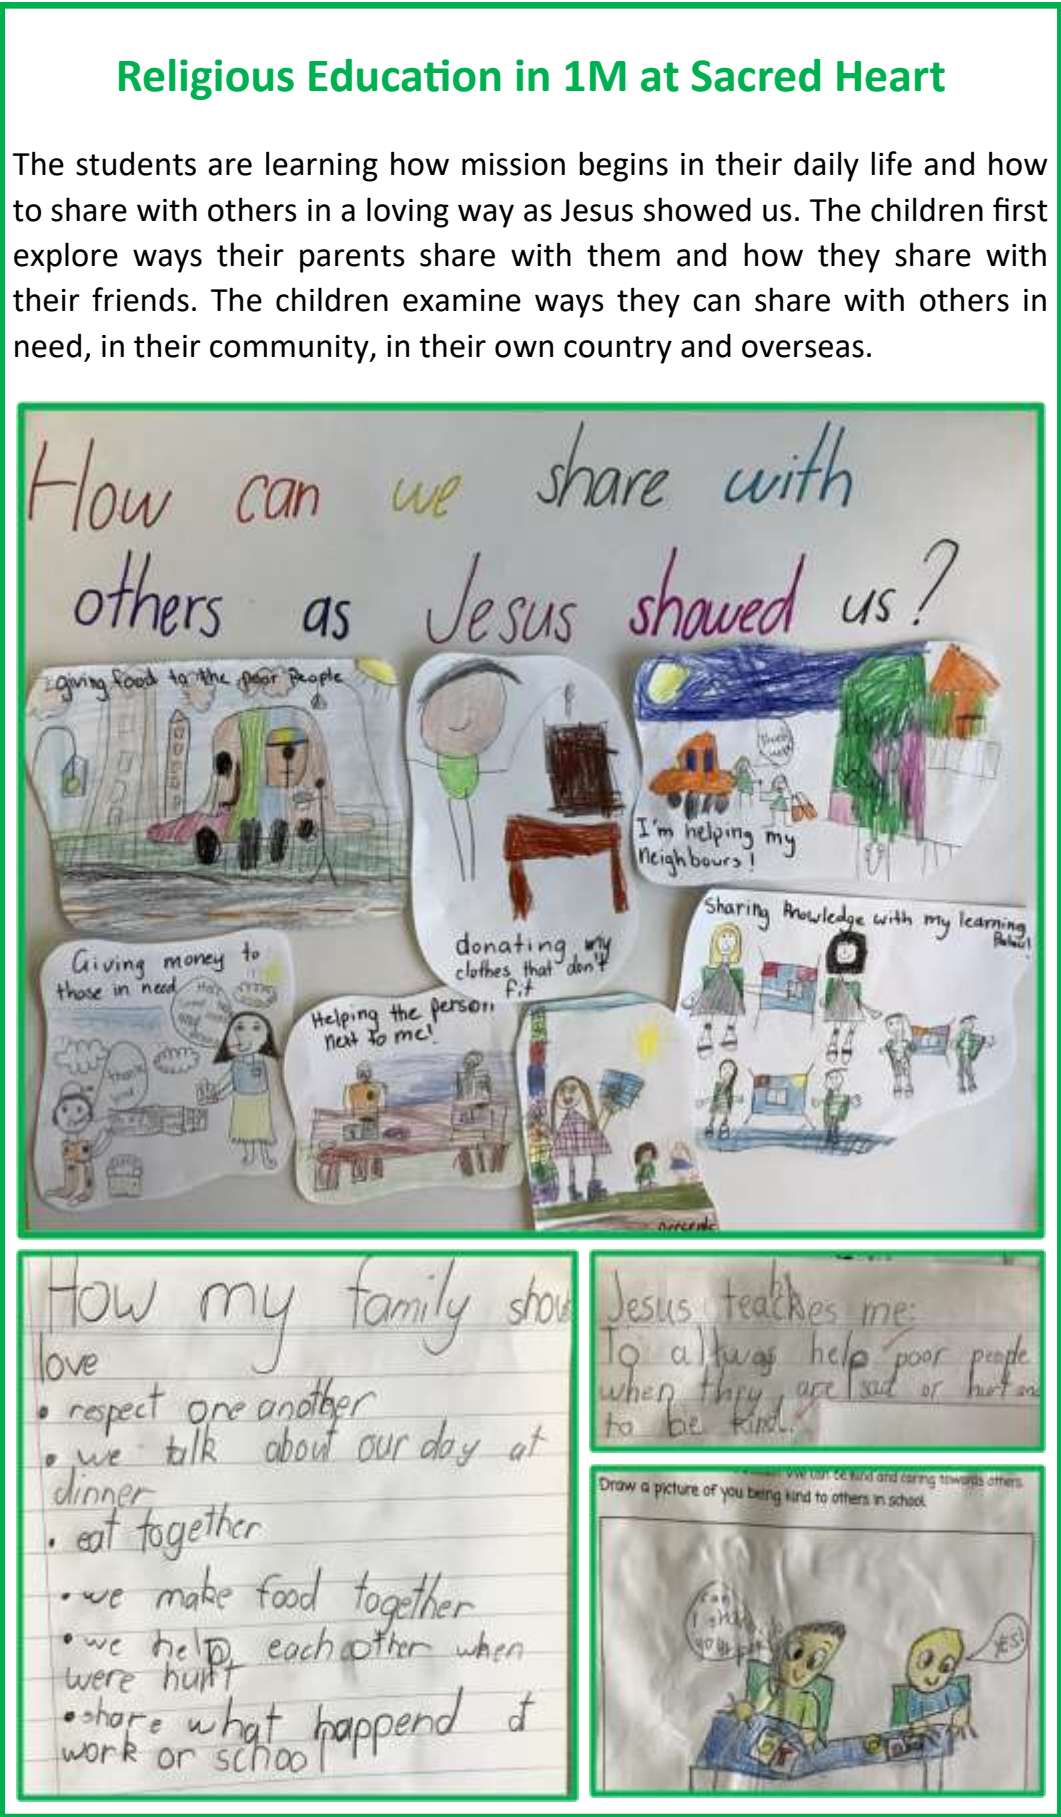 Religious Education in 1M at Sacred Heart
The students are learning how mission begins in their daily life and how
to share with others in a loving way as Jesus showed us. The children first
explore ways their parents share with them and how they share with
their friends. The children examine ways they can share with others in
need, in their community, in their own country and overseas.
How can we share with
others as Jesus showed us?
giving food to the poor People
thank you!
I'm helping my
Neighbours!
donating my
clothes that don't
fit
Sharing knowledge with my learning
Giving money to
those in need
thank
you
Helping the person
next to me!
presents
How my family show
love
• respect one another
• we talk about our day at
dinner
• eat together
• we make food together
• we help each other when
were hurt
• share what happend at
work or school
Jesus teaches me:
To always help poor people
when they are sad or hurt and
to be kind.
We can be kind and caring towards others.
Draw a picture of you being kind to others in school.
can
I
your
YES!